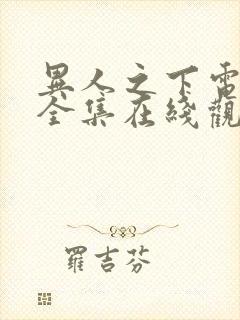 異人之下電
全集在綫觀
羅吉芬